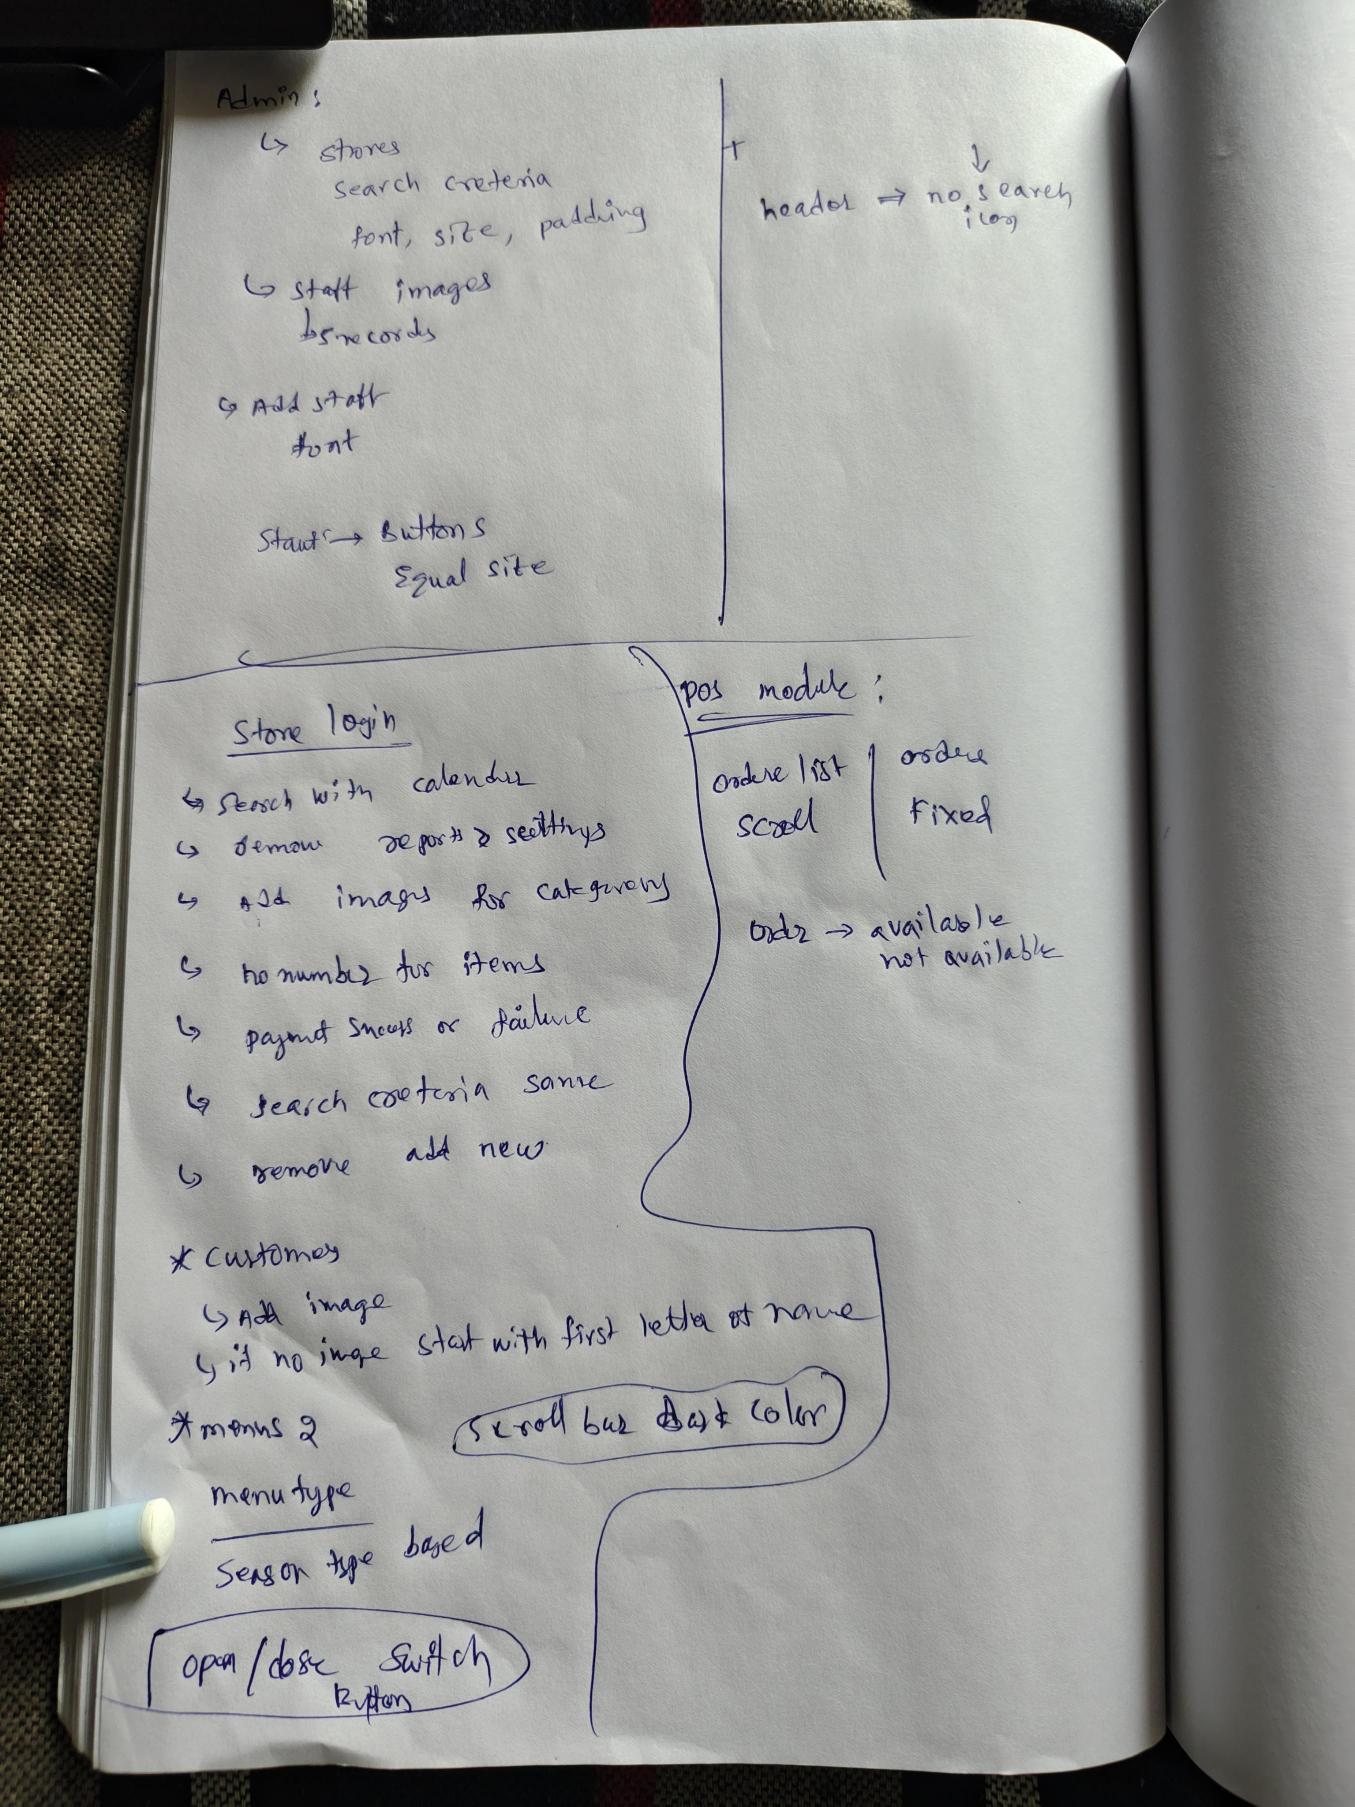 Admin :
↳ stores
search creteria
font, size, padding
↳ staff images
records
↳ Add staff
font
→ Buttons
Equal size
header ⇒ no search
icon
Store login
↳ search with calender
↳ remove reports & settings
↳ Add images for
↳ no number for items
↳ or failure
↳ search creteria same
↳ remove add new
* customer
↳ Add image
↳ if no image start with first letter of name
* menus 2
scroll bar dark color
menu type
season type based
open/close switch
button
pos module :
ordere list
scroll
ordere
Fixed
order → available
not available